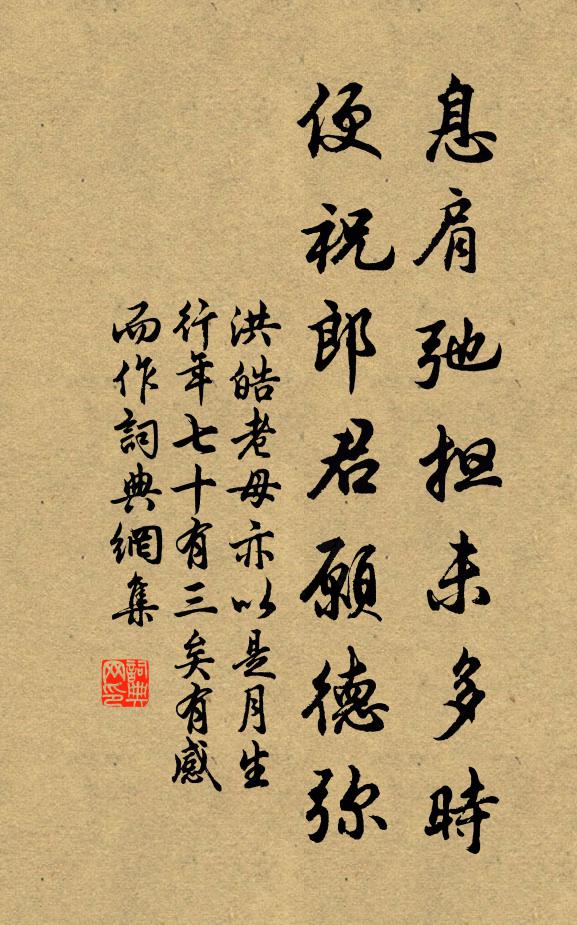 息肩弛担未多時
便祝郎君願德弥
洪皓老母亦以是月生
行年七十有三矣有感
而作詞典網集
詞典
网印